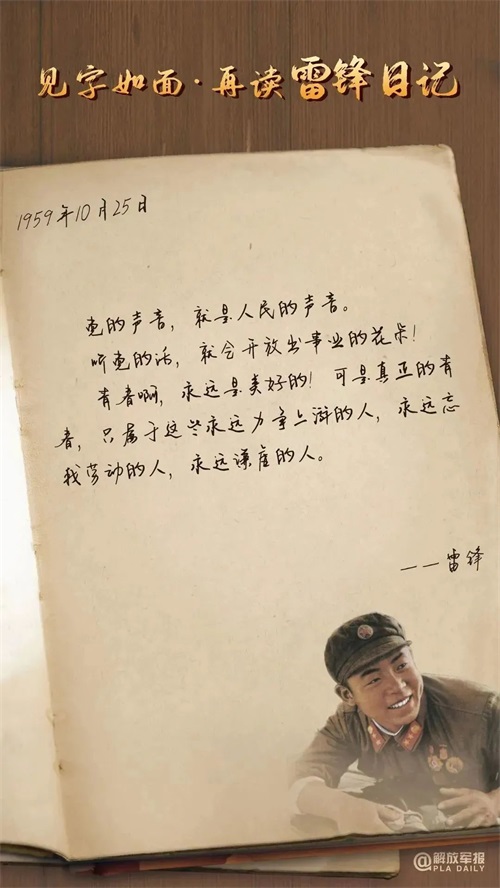 见字如面·再读雷锋日记
1959年10月25日
党的声音，就是人民的声音。
听党的话，就会开放出事业的花朵！
青春啊，永远是美好的！可是真正的青
春，只属于这些永远力争上游的人，永远忘
我劳动的人，永远谦虚的人。
——雷锋
@解放军报
PLA DAILY